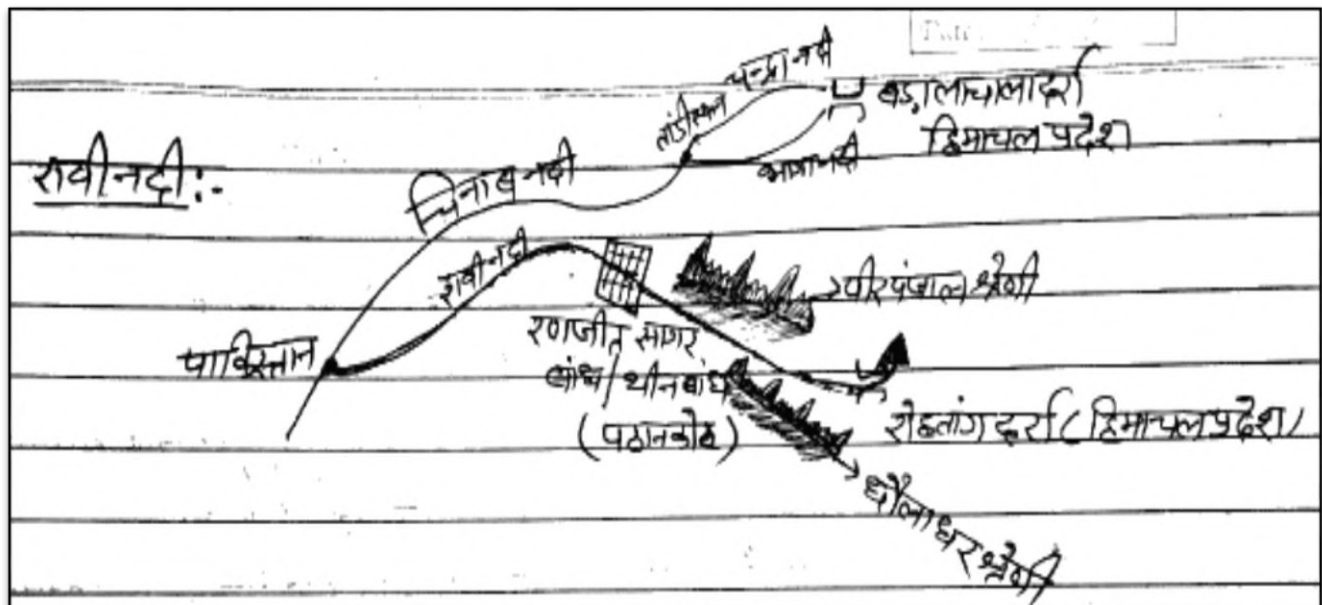 चन्द्रा नदी
बड़ालाचाला दर्रा
हिमाचल प्रदेश
तांडी स्थल
भागा नदी
रावी नदी :-
चिनाब नदी
रावी नदी
पीरपंजाल श्रेणी
पाकिस्तान
रणजीत सागर
बांध / थीन बांध
(पठानकोट)
रोहतांग दर्रा (हिमाचल प्रदेश)
धौलाधर श्रेणी